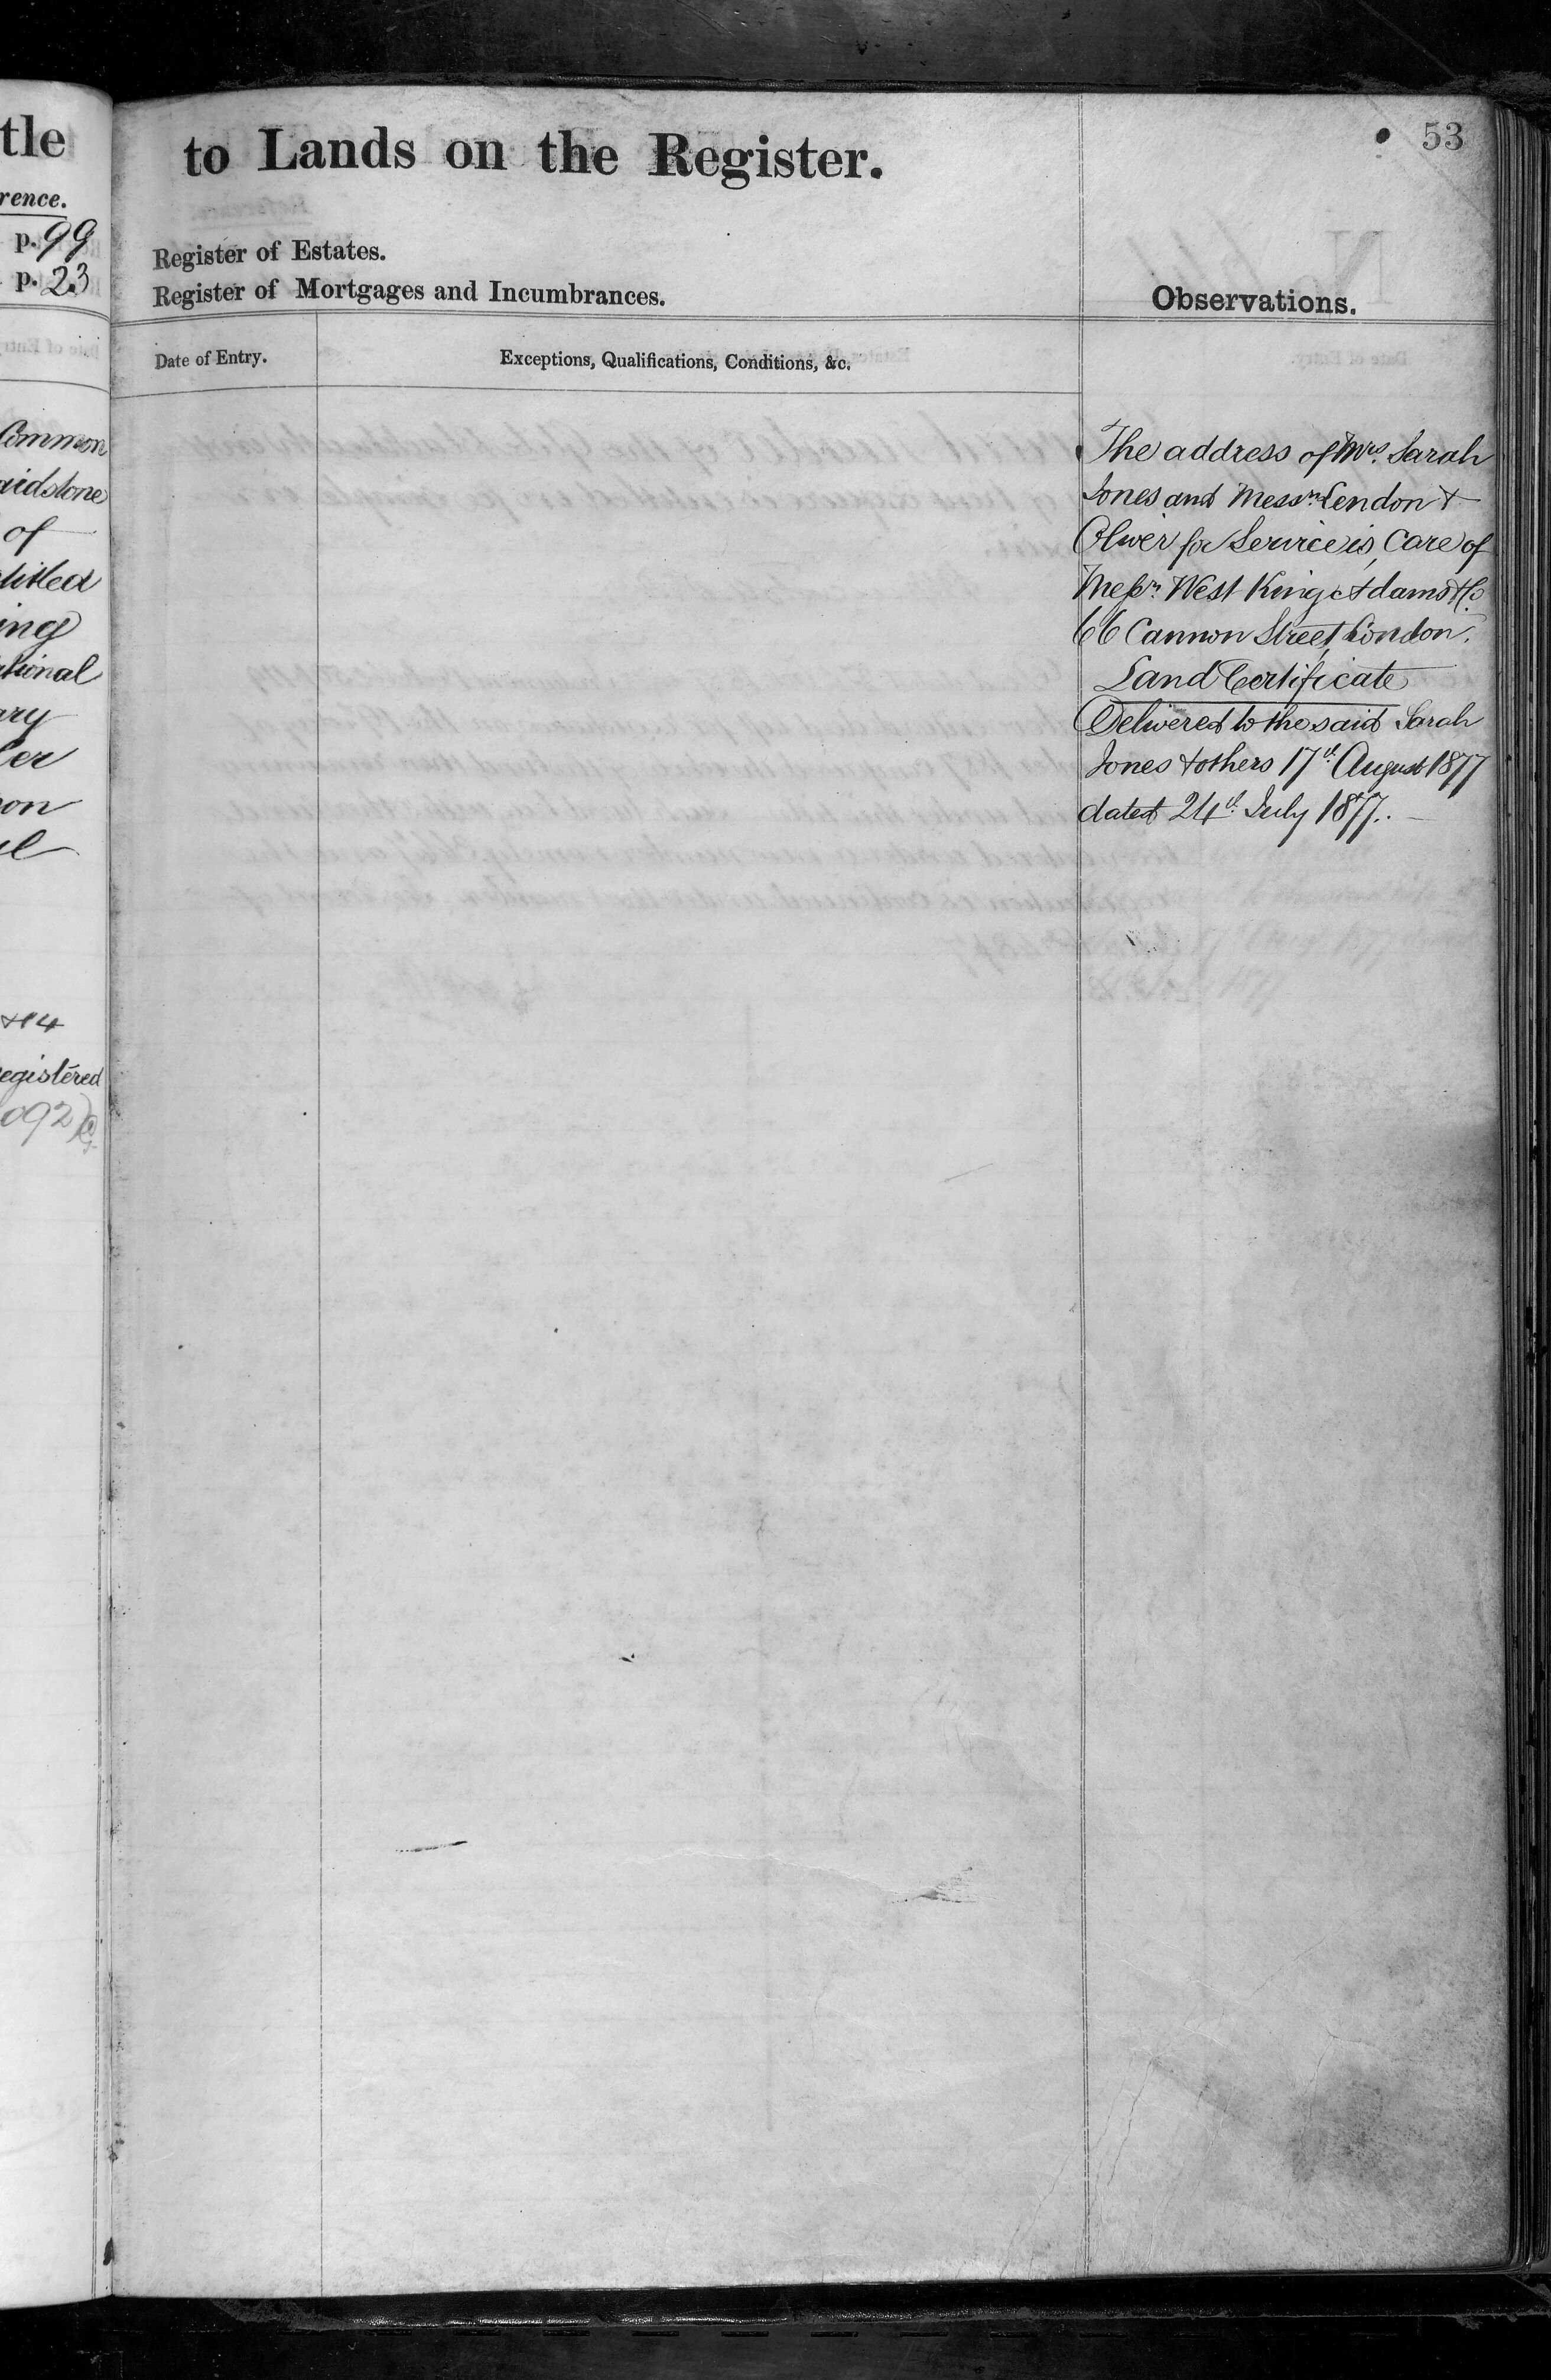 tle
rence.
p. 99
p. 23
Common
aidstone
of
titled
ing
ational
ary
ler
on
el
&14
egistered
092)
53
to Lands on the Register.
Register of Estates.
Register of Mortgages and Incumbrances.
Observations.
Date of Entry.
Exceptions, Qualifications, Conditions, &c.
The address of Mrs. Sarah
Jones and Messrs Lendon &
Oliver for Service is, Care of
Messrs West King Adams & Co
66 Cannon Street, London.
Land Certificate
Delivered to the said Sarah
Jones & others 17th August 1877
dated 24th July 1877.